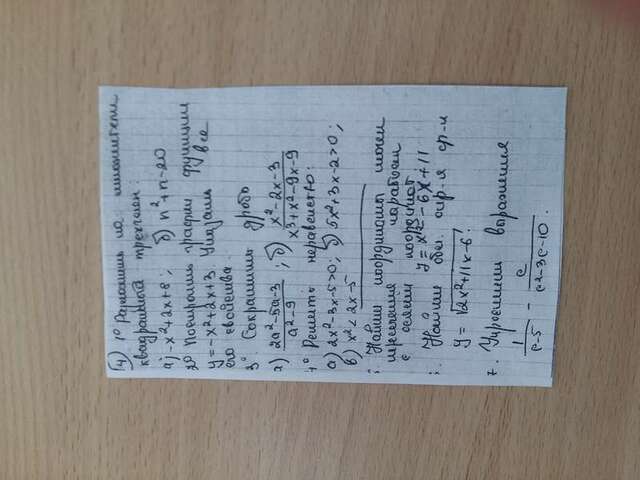 4) 1° Разложить на множители
квадратный трехчлен:
а) -x²+2x+8; б) n²+n-20
2° Построить график функции
y=-x²+2x+3. Указать все
его свойства.
3° Сократить дробь
а) (2a²-5a-3)/(a²-9); б) (x²-2x-3)/(x³+x²-9x-9)
4° Решить неравенство:
а) 2x²-3x-5>0; б) 5x²+3x-2>0;
в) x² < 2x-5
Найти координаты точек
пересечения параболы
с осями координат
y = x² - 6x + 11
Найти обл. опр-я ф-и
y = √(2x²+11x-6)
7. Упростить выражения
1/(c-5) - c/(c²-3c-10).